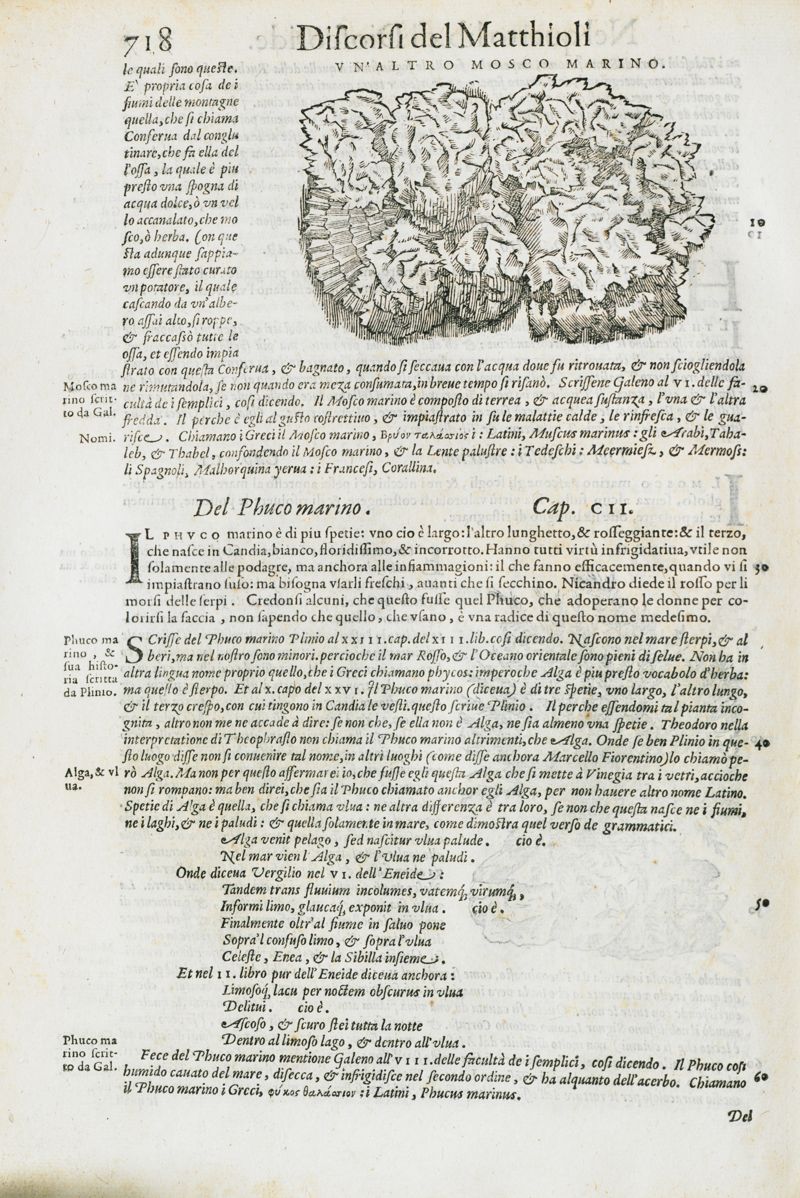 718
Discorsi del Matthioli
VN'ALTRO MOSCO MARINO.
le quali sono queste.
E' propria cosa de i
fiumi delle montagne
quella, che si chiama
Conserua dal conglu
tinare, che fa ella del
l'ossa, la quale è piu
presto vna spogna di
acqua dolce, ò vn vel
lo accanalato, che mo
sco, ò herba. Con que
sta adunque sappia-
mo essere stato curato
vn potatore, il quale
cascando da vn'albe-
ro assai alto, si roppe,
& fraccassò tutte le
ossa, et essendo impia
strato con questa Conserua, & bagnato, quando si seccaua con l'acqua doue fu ritrouata, & non sciogliendola
ne rimutandola, se non quando era meza consumata, in breue tempo si risanò. Scrissene Galeno al VI. delle fa-
cultà de i semplici, così dicendo. Il Mosco marino è composto di terrea, & acquea sustanza, l'una & l'altra
fredda. Il perche è egli al gusto costrettiuo, & impiastrato in su le malattie calde, le rinfresca, & le gua-
risce. Chiamano i Greci il Mosco marino, i: Latini, Muscus marinus: gli Arabi, Taha-
leb, & Thabel, confondendo il Mosco marino, & la Lente palustre: i Tedeschi: Meermiesz, & Mermosi:
li Spagnoli, Malhorquina yerua: i Francesi, Corallina.
Mosco ma
rino scrit-
to da Gal.
Nomi.
10
20
Del Phuco marino. Cap. CII.
IL PHVCO marino è di piu spetie: vno cio è largo: l'altro lunghetto, & rosseggiante: & il terzo,
che nasce in Candia, bianco, floridissimo, & incorrotto. Hanno tutti virtù infrigidatiua, vtile non
solamente alle podagre, ma anchora alle infiammagioni: il che fanno efficacemente, quando vi si
impiastrano suso: ma bisogna vsarli freschi, auanti che si secchino. Nicandro diede il rosso per li
morsi delle serpi. Credonsi alcuni, che questo fusse quel Phuco, che adoperano le donne per co-
lorirsi la faccia, non sapendo che quello, che vsano, è vna radice di questo nome medesimo.
30
Phuco ma
rino, &
sua histo-
ria scritta
da Plinio.
SCrisse del Phuco marino Plinio al XXIII. cap. del XIII. lib. cosi dicendo. Nascono nel mare sterpi, & al
beri, ma nel nostro sono minori. percioche il mar Rosso, & l'Oceano orientale sono pieni di selue. Non ha in
altra lingua nome proprio quello, che i Greci chiamano phycos: imperoche Alga è piu presto vocabolo d'herba:
ma questo è sterpo. Et al X. capo del XXVI. Il Phuco marino (diceua) è di tre spetie, vno largo, l'altro lungo,
& il terzo crespo, con cui tingono in Candia le vesti. questo scriue Plinio. Il perche essendomi tal pianta inco-
gnita, altro non me ne accade à dire: se non che, se ella non è Alga, ne sia almeno vna spetie. Theodoro nella
interpretatione di Theophrasto non chiama il Phuco marino altrimenti, che Alga. Onde se ben Plinio in que-
sto luogo disse non si conuenire tal nome, in altri luoghi (come disse anchora Marcello Fiorentino) lo chiamò pe-
rò Alga. Ma non per questo affermarei io, che fusse egli questa Alga che si mette à Vinegia tra i vetri, accioche
non si rompano: ma ben direi, che sia il Phuco chiamato anchor egli Alga, per non hauere altro nome Latino.
Spetie di Alga è quella, che si chiama vlua: ne altra differenza è tra loro, se non che questa nasce ne i fiumi,
ne i laghi, & ne i paludi: & quella solamente in mare, come dimostra quel verso de grammatici.
Alga, & vl
ua.
40
Alga venit pelago, sed nascitur vlua palude. cio è.
Nel mar vien l'Alga, & l'vlua ne paludi.
Onde diceua Vergilio nel VI. dell'Eneide:
Tandem trans fluuium incolumes, vatemq́, virumq́,
Informi limo, glaucaq́, exponit in vlua. cio è.
Finalmente oltr'al fiume in saluo pone
Sopra'l confuso limo, & sopra l'vlua
Celeste, Enea, & la Sibilla insieme.
Et nel II. libro pur dell'Eneide diceua anchora:
Limosoq́, lacu per noctem obscurus in vlua
Delitui. cio è.
Ascoso, & scuro stei tutta la notte
Dentro al limoso lago, & dentro all'vlua.
50
Phuco ma
rino scrit-
to da Gal.
Fece del Phuco marino mentione Galeno all'VIII. delle facultà de i semplici, cosi dicendo. Il Phuco cosi
humido cauato del mare, disecca, & infrigidisce nel secondo ordine, & ha alquanto dell'acerbo. Chiamano
il Phuco marino i Greci, φύκος θαλάσσιον: i Latini, Phucus marinus.
60
Del